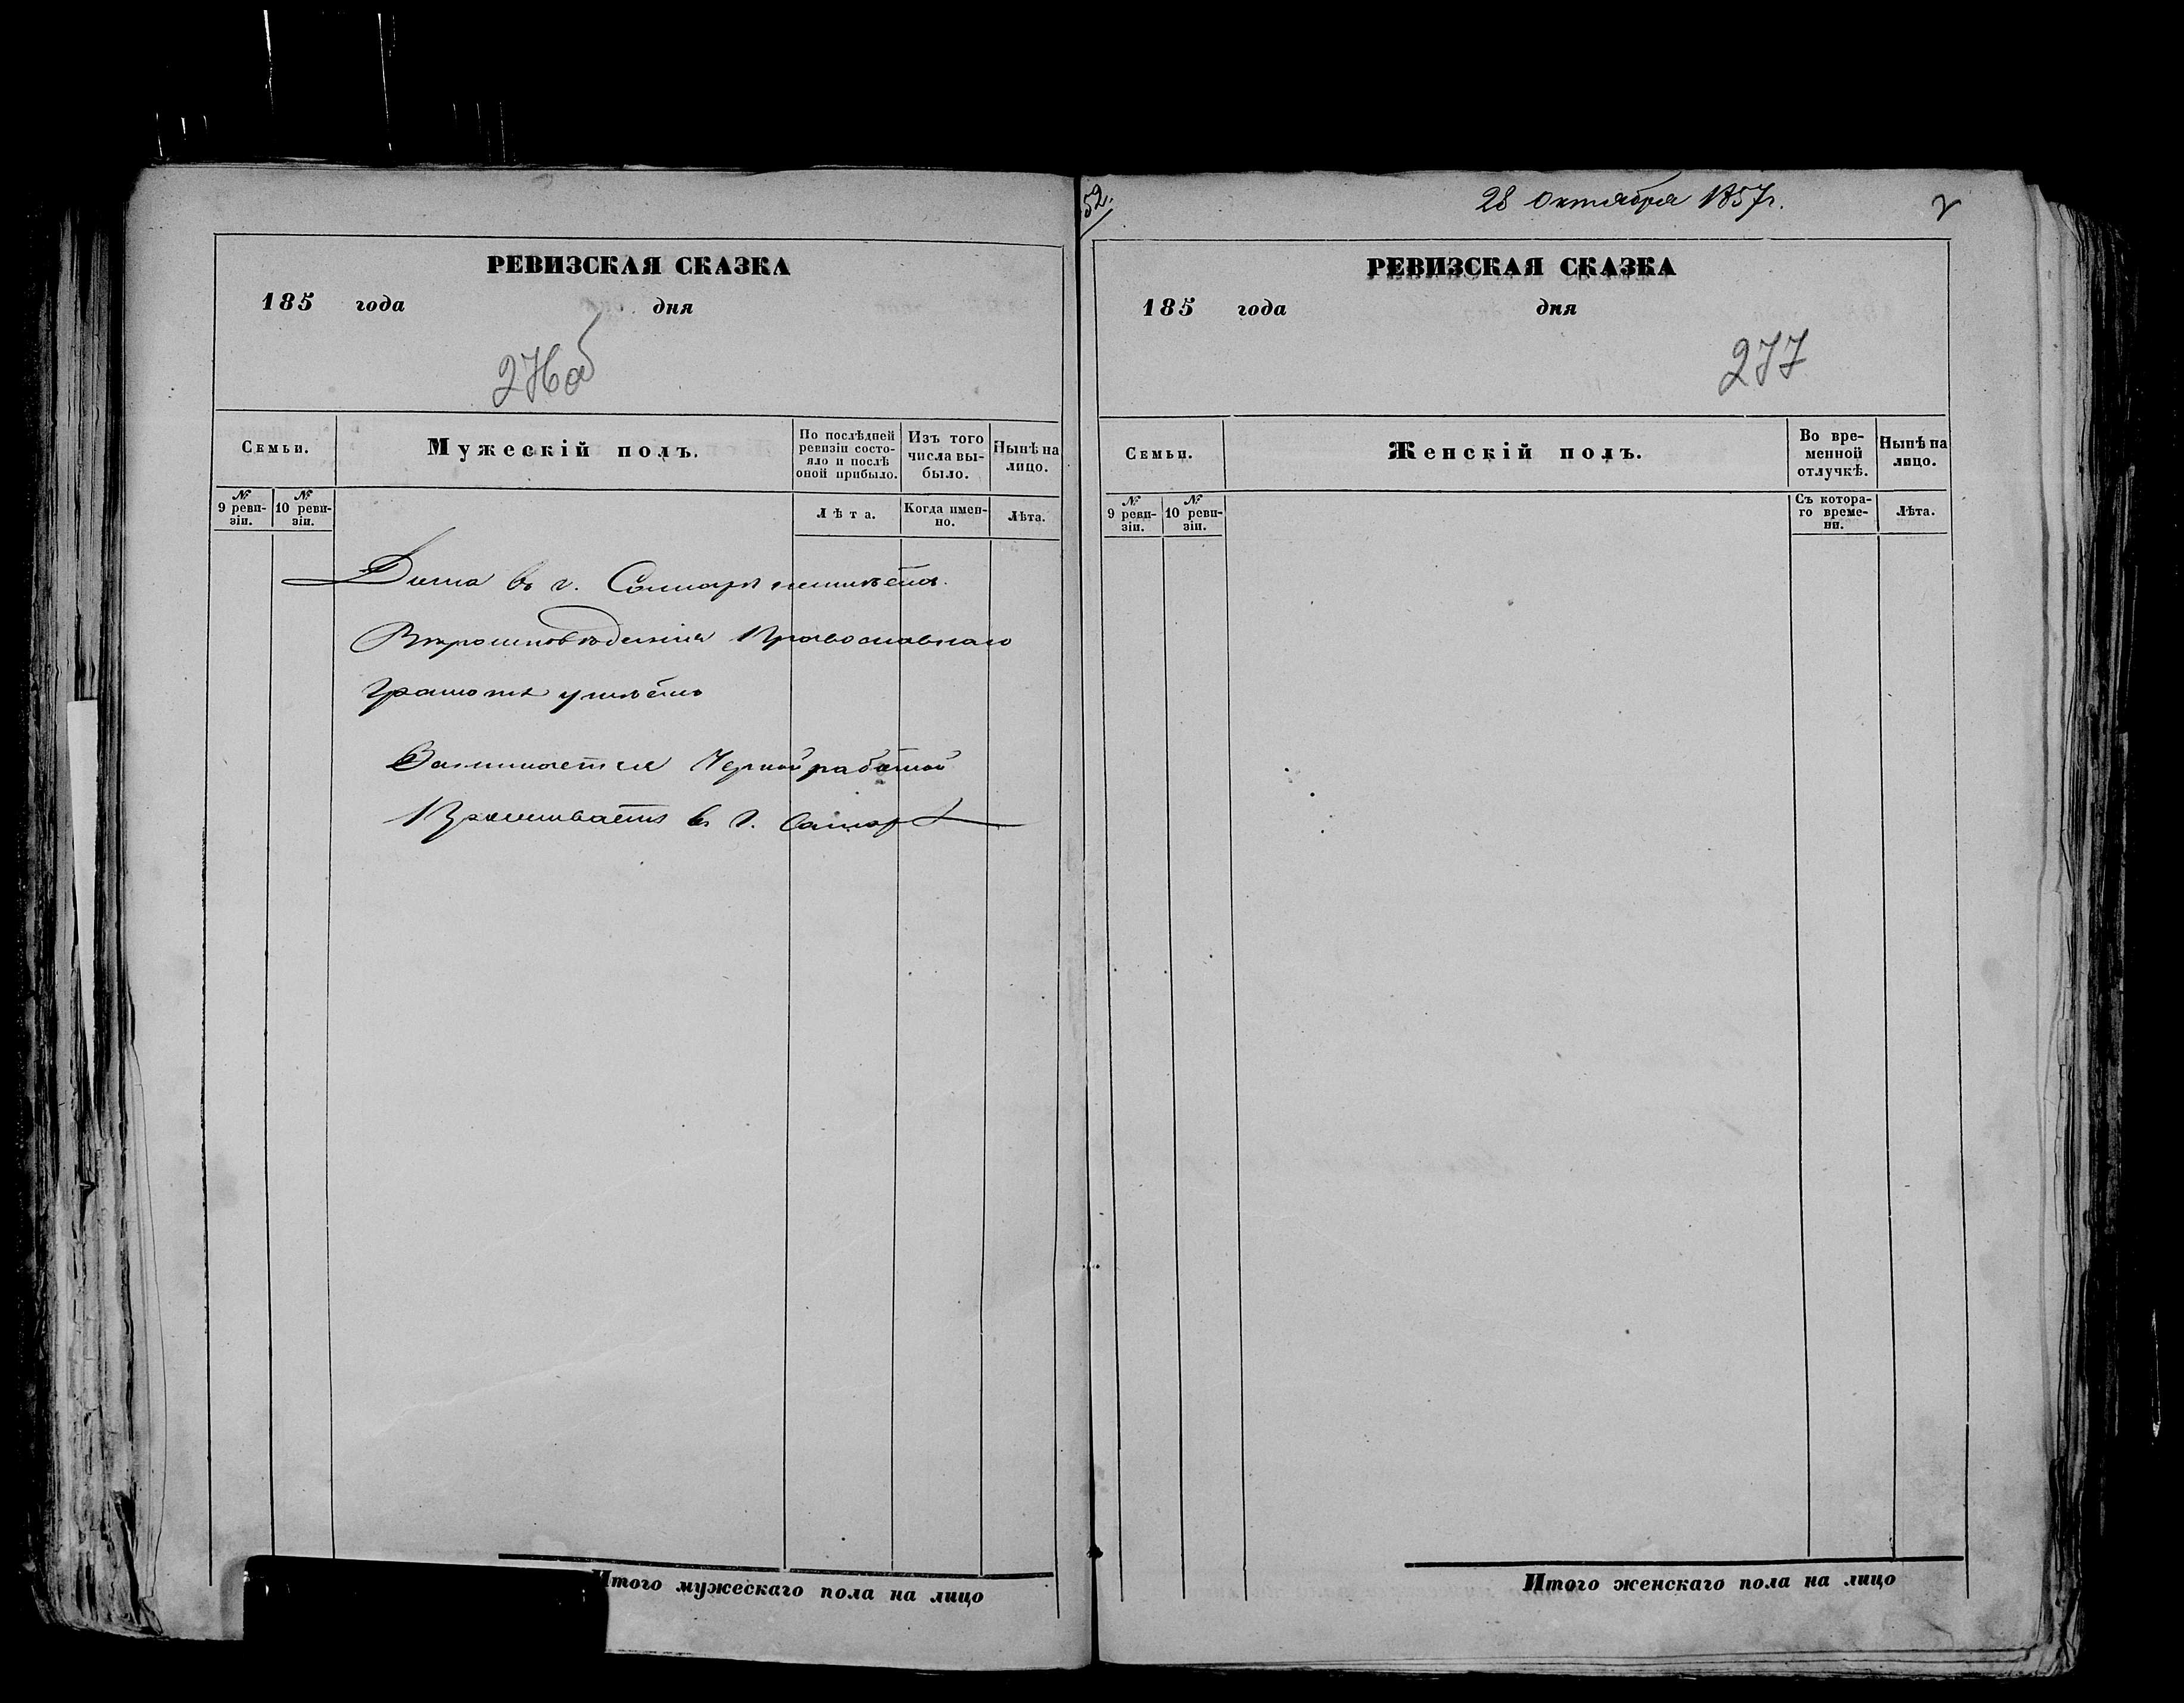 РЕВИЗСКАЯ СКАЗКА
185 года дня
276об
Семьи.
Мужескій полъ.
По послѣдней ревизіи состо-
яло и послѣ
оной прибыло.
Изъ того
числа вы-
было.
Нынѣ на
лицо.
№
9 реви-
зіи.
№
10 реви-
зіи.
Лѣта.
Когда имен-
но.
Лѣта.
Дома въ г. Самарѣ неимѣетъ.
Вѣроисповѣденія Православнаго
Грамотѣ умѣетъ
Занимается Черной работой
Проживаетъ въ г. Самарѣ
Итого мужескаго пола на лицо
52.
28 Октября 1857г.
РЕВИЗСКАЯ СКАЗКА
185 года дня
277
Семьи.
Женскій полъ.
Во вре-
менной
отлучкѣ.
Нынѣ на
лицо.
№
9 реви-
зіи.
№
10 реви-
зіи.
Съ котора-
го време-
ни.
Лѣта.
Итого женскаго пола на лицо